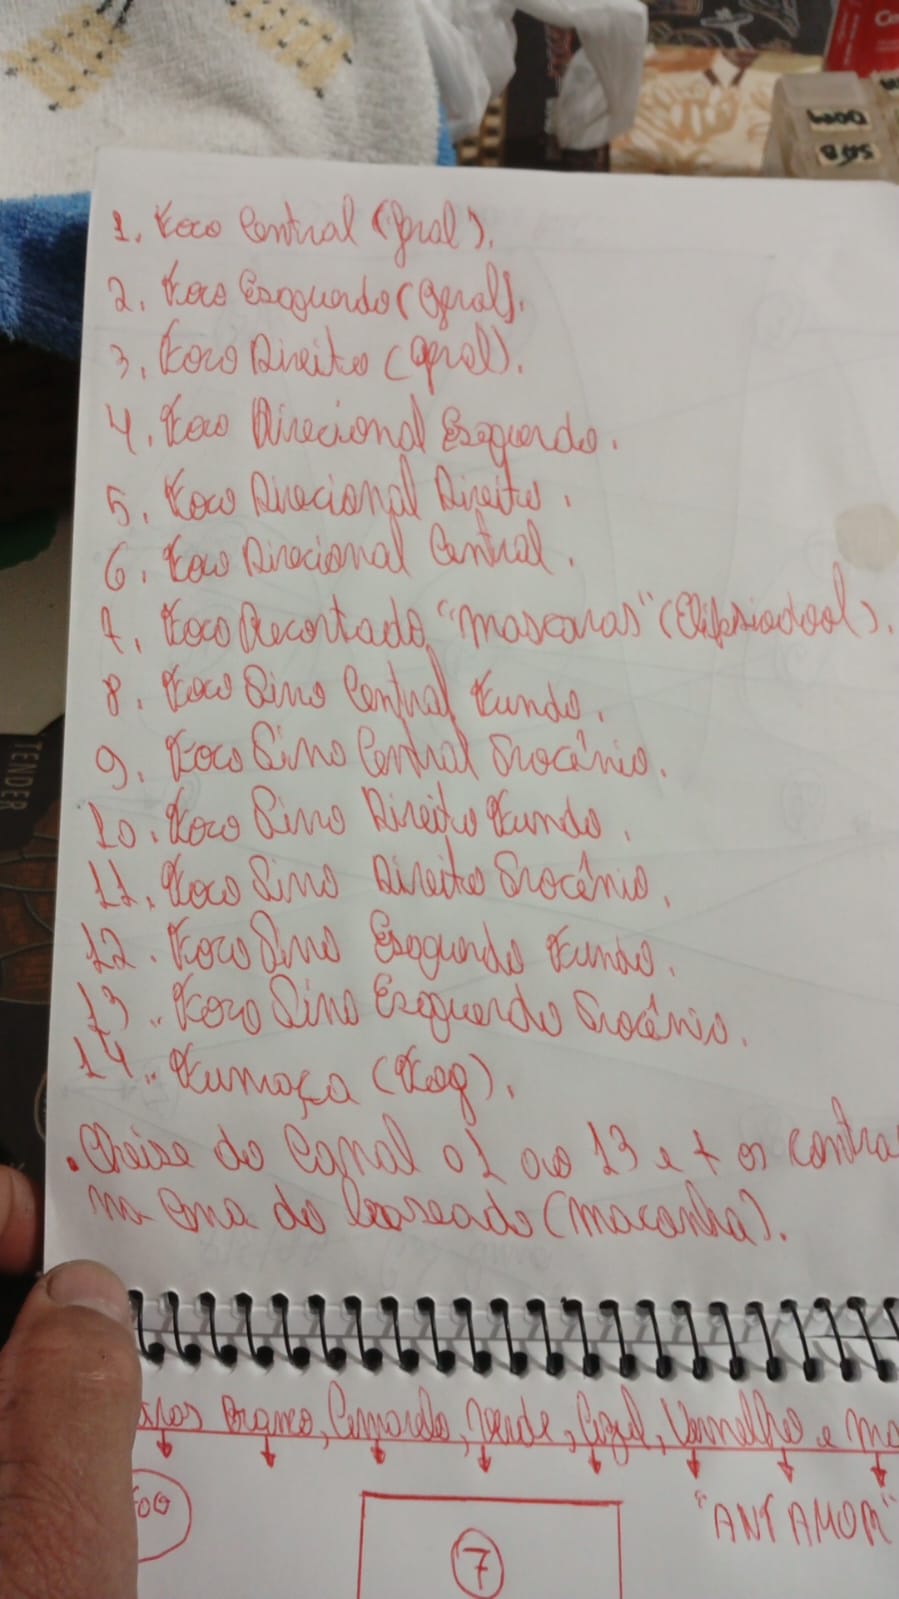 1. Foco Central (Geral).
2. Foco Esquerdo (Geral).
3. Foco Direito (Geral).
4. Foco Direcional Esquerdo.
5. Foco Direcional Direito.
6. Foco Direcional Central.
7. Foco Recortado "Mascaras" (Elipsiodal).
8. Foco Pino Central Fundo.
9. Foco Pino Central Procênio.
10. Foco Pino Direito Fundo.
11. Foco Pino Direito Procênio.
12. Foco Pino Esquerdo Fundo.
13. Foco Pino Esquerdo Procênio.
14. Fumaça (Fog).
do Canal 01 ao 13 e + os contra
do baseado (maconha).
Branco, Verde, Azul, Vermelho e
FOG
"ANTAMOR"
7
TENDER